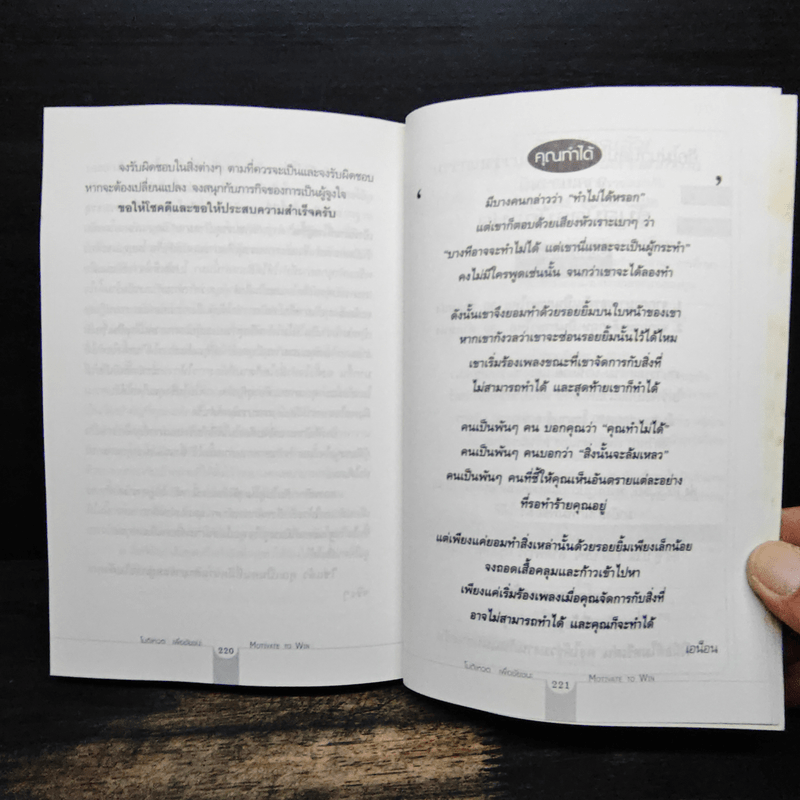 จงรับผิดชอบในสิ่งต่างๆ ตามที่ควรจะเป็นและจงรับผิดชอบ
หากจะต้องเปลี่ยนแปลง จงสนุกกับภารกิจของการเป็นผู้จูงใจ
ขอให้โชคดีและขอให้ประสบความสำเร็จครับ
โมติเวต เพื่อชัยชนะ 220 MOTIVATE TO WIN
คุณทำได้
‘ ’
มีบางคนกล่าวว่า “ทำไม่ได้หรอก”
แต่เขาก็ตอบด้วยเสียงหัวเราะเบาๆ ว่า
“บางทีอาจจะทำไม่ได้ แต่เขานี่แหละจะเป็นผู้กระทำ”
คงไม่มีใครพูดเช่นนั้น จนกว่าเขาจะได้ลองทำ
ดังนั้นเขาจึงยอมทำด้วยรอยยิ้มบนใบหน้าของเขา
หากเขากังวลว่าเขาจะซ่อนรอยยิ้มนั้นไว้ได้ไหม
เขาเริ่มร้องเพลงขณะที่เขาจัดการกับสิ่งที่
ไม่สามารถทำได้ และสุดท้ายเขาก็ทำได้
คนเป็นพันๆ คน บอกคุณว่า “คุณทำไม่ได้”
คนเป็นพันๆ คนบอกว่า “สิ่งนั้นจะล้มเหลว”
คนเป็นพันๆ คนที่ชี้ให้คุณเห็นอันตรายแต่ละอย่าง
ที่รอทำร้ายคุณอยู่
แต่เพียงแค่ยอมทำสิ่งเหล่านั้นด้วยรอยยิ้มเพียงเล็กน้อย
จงถอดเสื้อคลุมและก้าวเข้าไปหา
เพียงแค่เริ่มร้องเพลงเมื่อคุณจัดการกับสิ่งที่
อาจไม่สามารถทำได้ และคุณก็จะทำได้
เอน็อน
โมติเวต เพื่อชัยชนะ 221 MOTIVATE TO WIN